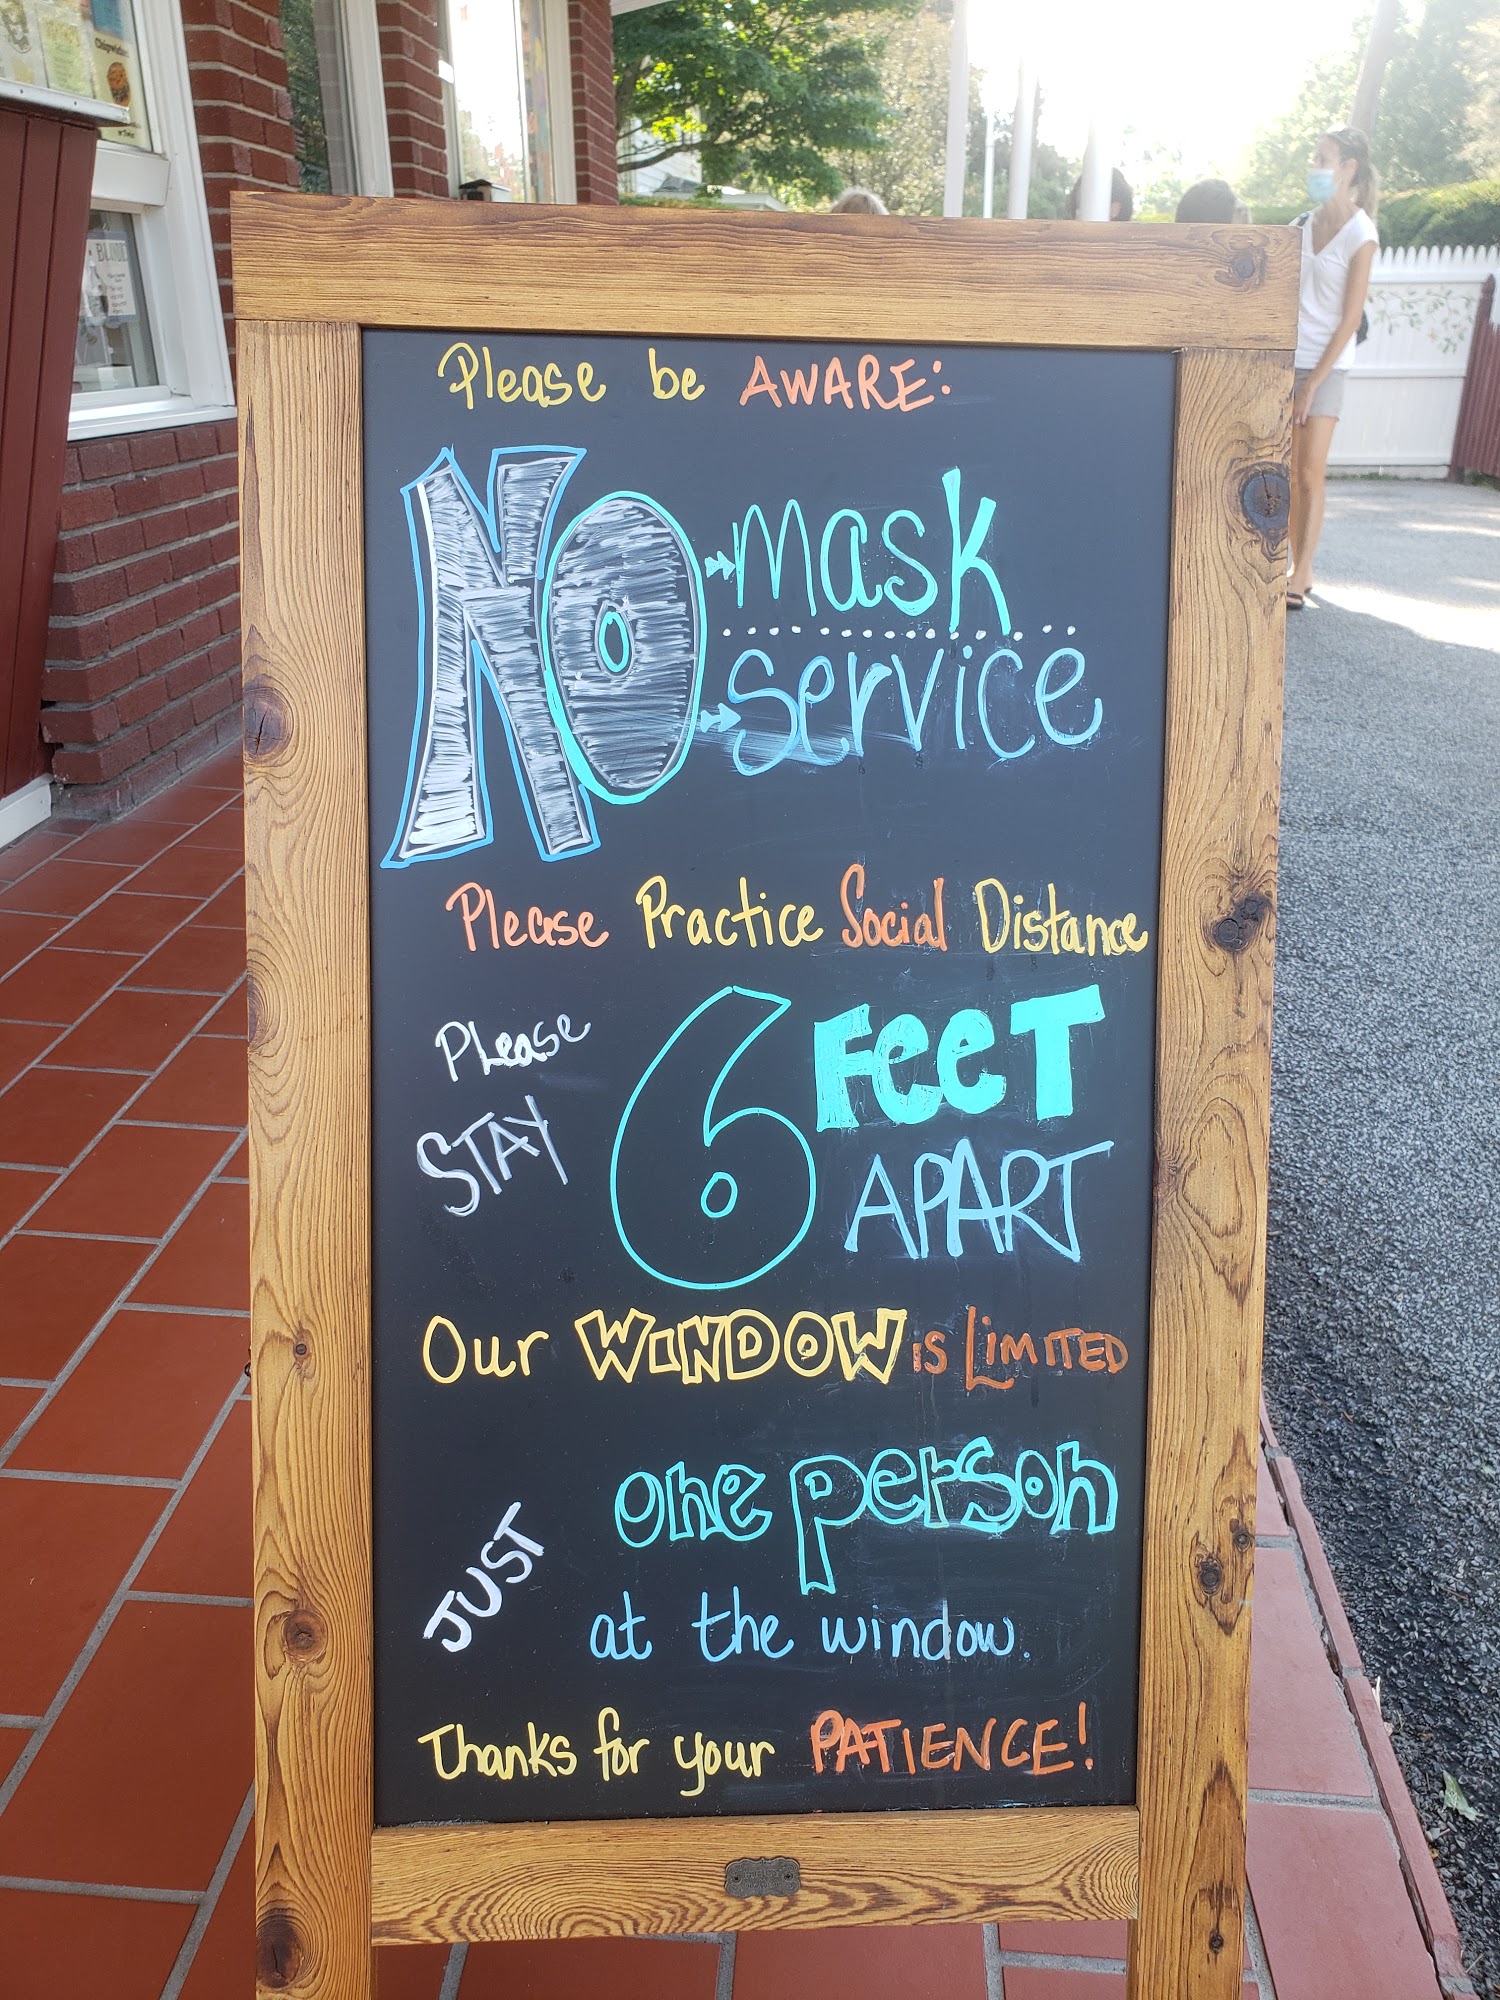 Please be AWARE:
NO mask
service
Please Practice Social Distance
Please
STAY
6 FeeT
APART
Our WiNDOW is LiMITED
JUST
one person
at the window.
Thanks for your PATIENCE!
BLONDIE